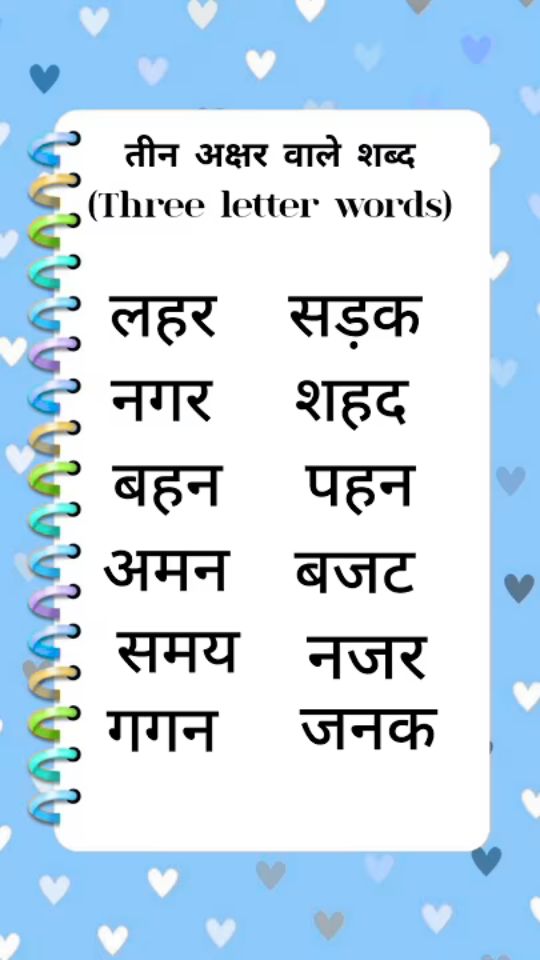 तीन अक्षर वाले शब्द
(Three letter words)
लहर सड़क
नगर शहद
बहन पहन
अमन बजट
समय नजर
गगन जनक